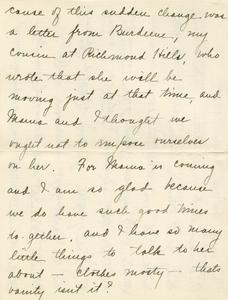 cause of this sudden change was
a letter from Burdeene, my
cousin at Richmond Hills, who
wrote that she will be
moving just at that time, and
Mama and I thought we
ought not to impose ourselves
on her. For Mama is coming
and I am so glad because
we do have such good times
to-gether. and I have so many
little things to talk to her
about — clothes mostly — thats
vanity isn't it?